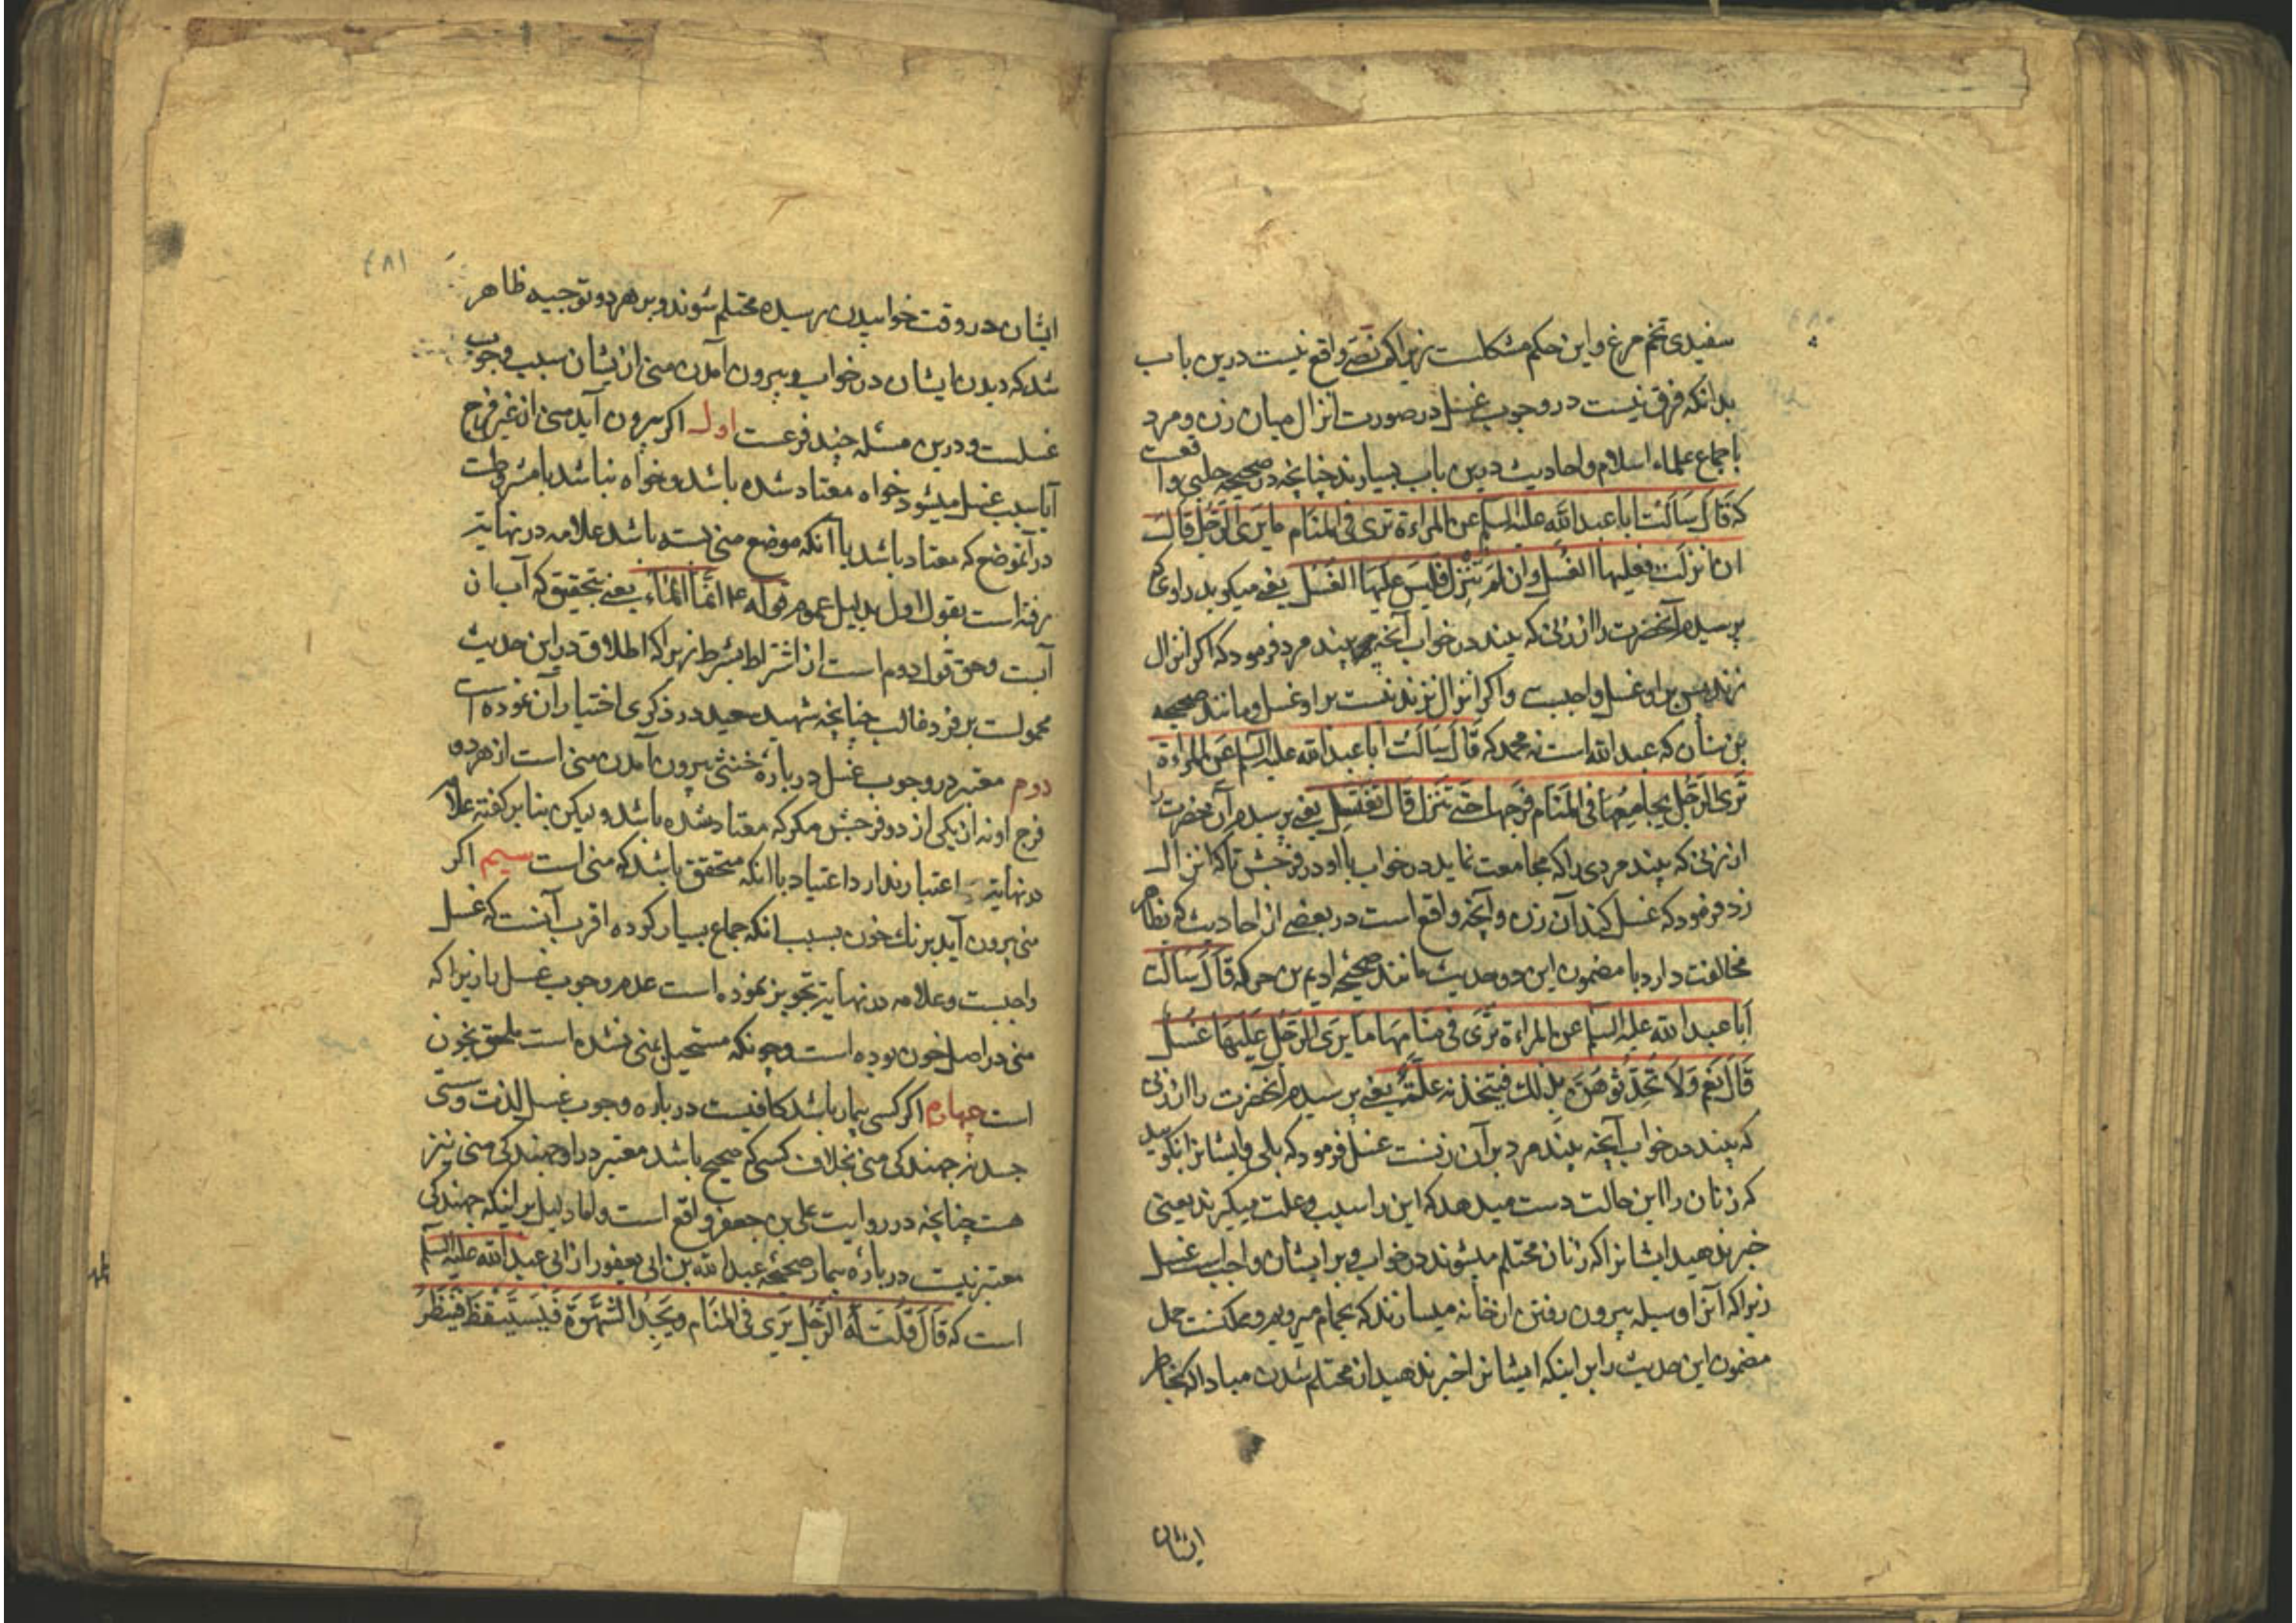 سفیدی تخم مرغ و این حکم مشکلست زیراکه نصّی واقع نیست درین باب
بدانکه فرقی نیست در وجوب غسل در صورت انزال میان زن و مرد
باجماع علماء اسلام و احادیث درین باب بسیارند چنانچه در صحیحه حلبی واقعست
که قَالَ سَاَلَتُ ابا عبد اللّه علیه السلم عن المراءة تری فی المنَام ما یَری الرَّجُل قَالَ
ان انزلَت فعلیها الغُسل وان لَم تُنْزِل فلَیسَ علیهَا الغُسل یعنی میکوید راوی که
پرسیدم آنحضرت را از زنی که بیند در خواب آنچه بیند مرد فرمود که اکر انزال
زند پس بر او غسل واجبست و اکر انزال نزند نیست بر او غسل و مانند صحیحه
بن سنان که عبد الله است نه محمد که قَالَ سَاَلَتُ ابا عبد اللّه علیه السلم عَن المراءة
تَری الرّجُل یجامعُهَا فی المَنَام فرجهَا حتّی تَنزل قَالَ تَغتَسِل یعنی پرسیدم آن حضرت را
از زنی که بیند مردی را که مجامعت نماید در خواب با او در فرجش تا که انزال
زد فرمود که غسل کند آن زن و آنچه واقع است در بعضی از احادیث که بظاهر
مخالفت دارد با مضمون این دو حدیث مانند صحیحه ادیم بن حر که قَالَ سَاَلَت
اَبا عبد اللّه علیه السلم عن المراءة تَرَی فی منَامهَا مَا یَری الرَّجُل عَلَیهَا غسُل
قَالَ نَعَم وَلَا تُحَدِّثُوهُنَّ بذلك فیتّخذنه علّةً یعنی پرسیدم آنحضرت را از زنی
که بیند در خواب آنچه بیند مرد بر آن زنست غسل فرمود که بلی و ایشانرا نکویید
که زنان را این حالت دست میدهد که این را سبب و علت میکیرند یعنی
خبر ندهید ایشانرا که زنان محتلم میشوند در خواب و بر ایشان واجب غسل
زیراکه آنرا وسیله بیرون رفتن از خانه میسازند که بحمام میرویم و ممکنست حمل
مضمون این حدیث را بر اینکه ایشانرا خبر ندهید از محتلم شدن مبادا که بخاطر
ایشان
ایشان در وقت خوابیدن رسیده محتلم شوند و بر هر دو توجیه ظاهر
شد که دیدن ایشان در خواب و بیرون آمدن منی از ایشان سبب وجوب
غسلست و درین مسئله چند فرعست اول اکر بیرون آید منی از غیر فرج
آیا سبب غسل میشود خواه معتاد شده باشد و خواه نباشد یا مشروطست
در آنموضع که معتاد باشد یا آنکه موضع منی بسته باشد علامه در نهایة
رفته است بقول اول بدلیل عموم قوله ع انّمَا المَاء یعنی بتحقیق که آب از
آبست و حق قول دوم است از اشتراط بشرط زیراکه اطلاق در این حدیث
محمولست بر فرد غالب چنانچه شهید سعید در ذکری اختیار آن نموده است
دوم معتبر در وجوب غسل در بارهٔ خنثی بیرون آمدن منی است از هر دو
فرج او نه از یکی از دو فرجش مکر که معتاد شده باشد ولیکن بنا بر کفته علامه
در نهایة اعتبار ندارد اعتیاد با آنکه متحقق باشد که منی است سیم اکر
منی بیرون آید برنك خون بسبب آنکه جماع بسیار کرده اقرب آنست که غسل
واجبست و علامه در نهایة تجویز نموده است عدم وجوب غسل را زیراکه
منی در اصل خون بوده است و چونکه مستحیل بمنی نشده است ملحق بخون
است چهارم اکر کسی بیمار باشد کافیست در باره وجوب غسل لذت و سستی
جسد نه جهندکی منی بخلاف کسی که صحیح باشد معتبر در او جهندکی منی نیز
هست چنانچه در روایت علی بن جعفر واقع است و اما دلیل بر اینکه جهندکی
معتبر نیست در باره بیمار صحیحه عبد الله بن ابی یعفور از ابی عبد اللّه علیه السلم
است که قَالَ قُلَت لَهُ الرّجُل یَری فی المنَام ویَجِدُ الشّهوَة فَیَستَیقِظُ فَیَنظُرُ